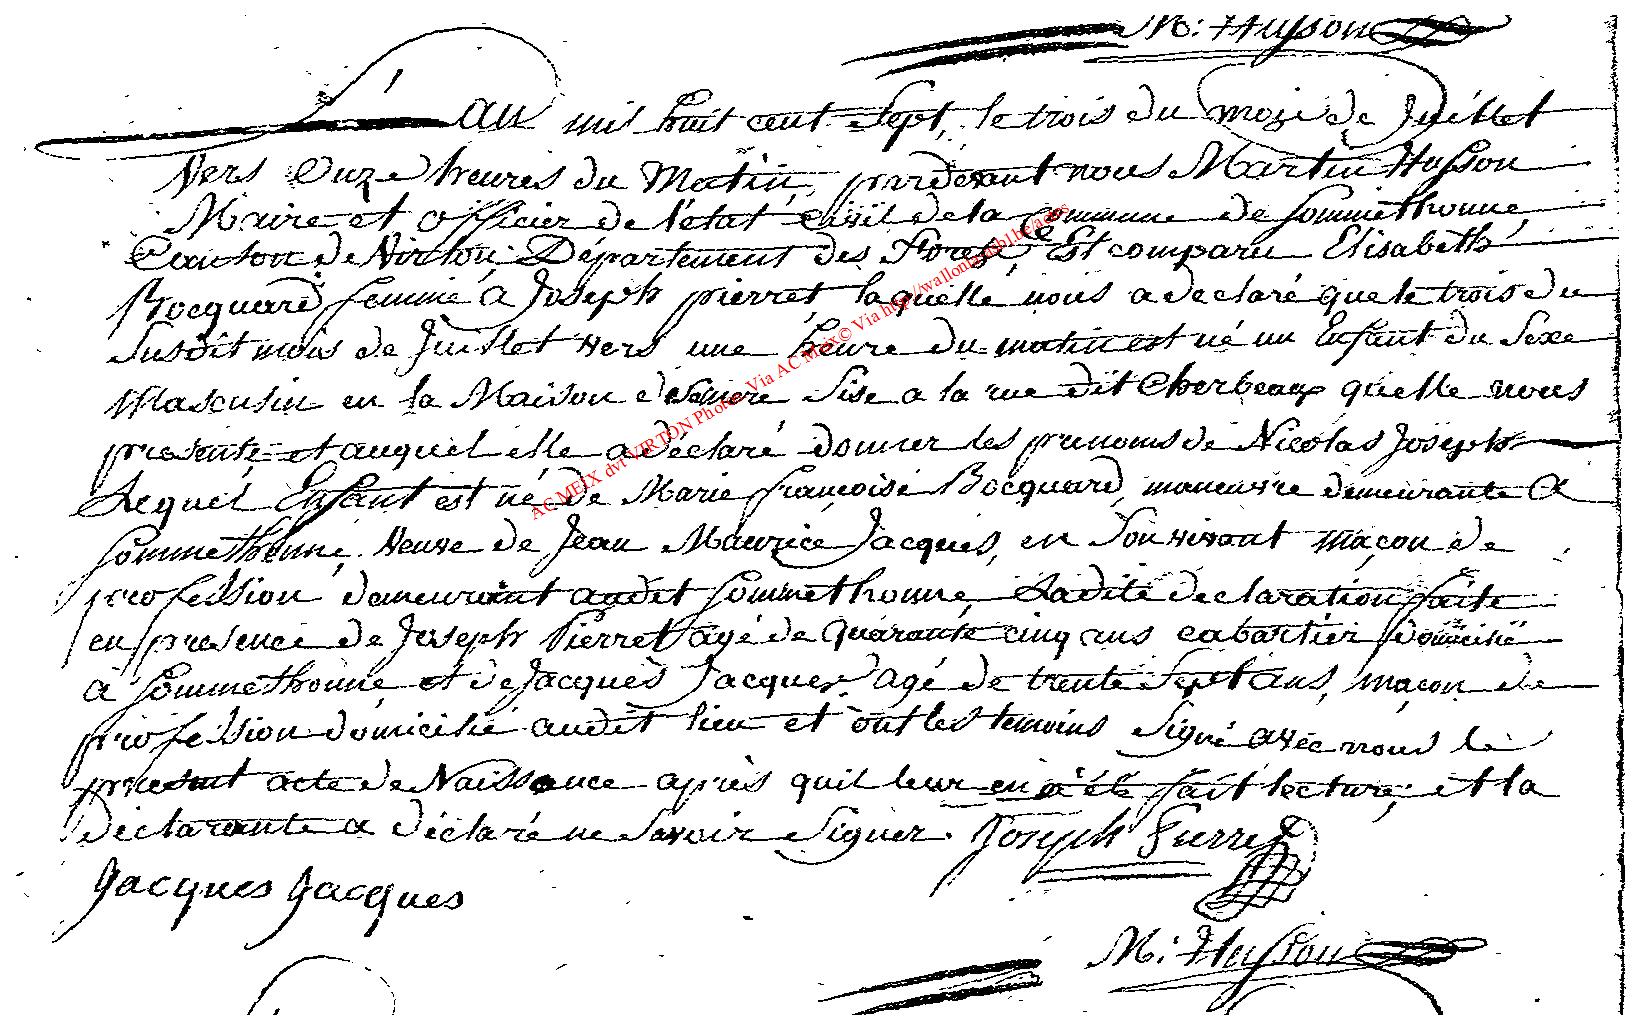 M: Husson
L'an mil huit cent Sept, le trois du moi de Juillet
vers Onze heures du Matin, pardevant nous Martin Husson
Maire et officier de l'état civil de la Commune de Sommethonne
Canton de Virton, Département des Forets, Est comparu Elisabeth
Bocquard femme a Joseph pierret, laquelle nous a declaré que le trois du
Susdit mois de Juillet vers une heure du matin est né un Enfant du Sexe
Masculin en la Maison Sise a la rue dit Cherbeaux quelle nous
presenté et auquel elle a déclaré donner les prenoms de Nicolas Joseph
Lequel Enfant est né de Marie françoise Bocquard, maneuvre demeurante a
Sommethonne, veuve de Jean Maurice Jacques, en Son vivant maçon de
profession demeurant audit Sommethonne, Ladite declaration faite
en presence de Joseph Pierret agé de quarante cinq ans cabartier domicilié
à Sommethonne, et de Jacques Jacques agé de trente Sept ans, maçon de
profession domicilié audit lieu et ont les temoins Signé avec nous le
present acte de Naissance après quil leur en a été fait lecture; et la
Déclarante a déclaré ne Savoir Signer. Joseph Pierret
Jacques Jacques
M: Husson
AC MEIX dvt VIRTON Photo Via AC Meix© Via http://wallonia.